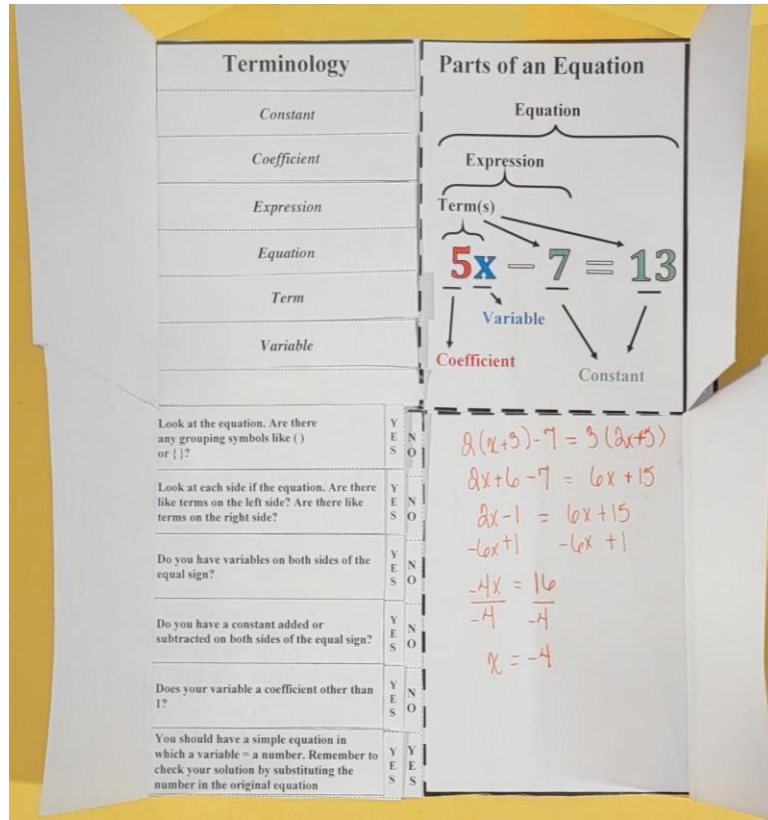 Terminology
Constant
Coefficient
Expression
Equation
Term
Variable
Parts of an Equation
Equation
Expression
Term(s)
5x – 7 = 13
Variable
Coefficient
Constant
Look at the equation. Are there
any grouping symbols like ( )
or { }?
YES
NO
Look at each side if the equation. Are there
like terms on the left side? Are there like
terms on the right side?
YES
NO
Do you have variables on both sides of the
equal sign?
YES
NO
Do you have a constant added or
subtracted on both sides of the equal sign?
YES
NO
Does your variable a coefficient other than
1?
YES
NO
You should have a simple equation in
which a variable = a number. Remember to
check your solution by substituting the
number in the original equation
YES
YES
2(x+3)-7 = 3(2x+5)
2x+6-7 = 6x+15
2x-1 = 6x+15
-6x+1 -6x +1
-4x = 16
-4 -4
x = -4